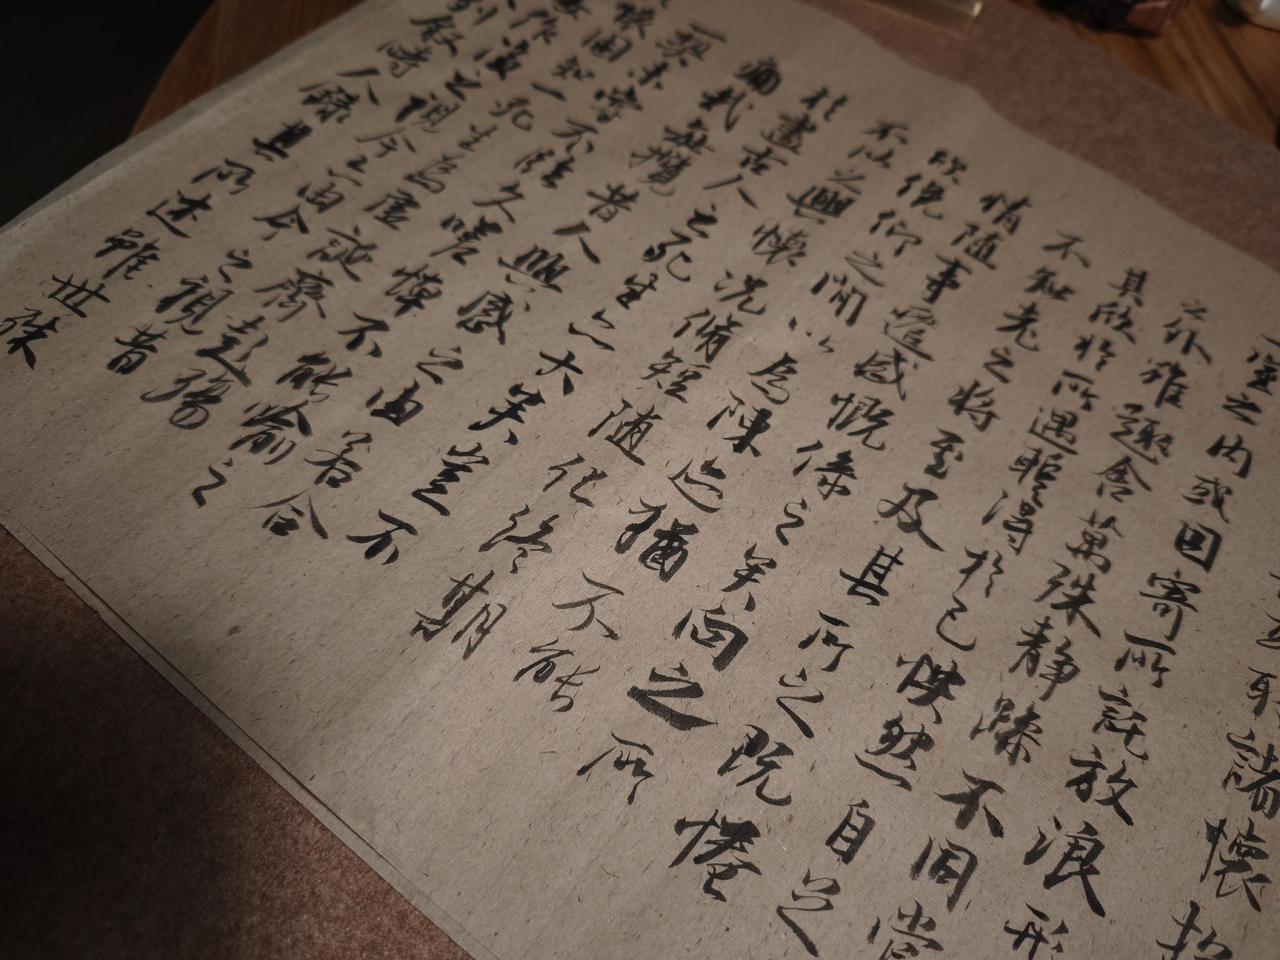 取諸懷抱
一室之內或因寄所託放浪形
之外雖趣舍萬殊靜躁不同當
其欣於所遇蹔得於己怏然自足
不知老之將至及其所之既惓
情隨事遷感慨係之矣向之所
欣俛仰之閒以為陳迹猶不能
不以之興懷況脩短隨化終期
於盡古人云死生亦大矣豈不
痛哉每攬昔人興感之由若合
一契未嘗不臨文嗟悼不能喻之
懷固知一死生為虛誕齊彭殤
妄作後之視今亦由今之視昔
列敘時人錄其所述雖世殊